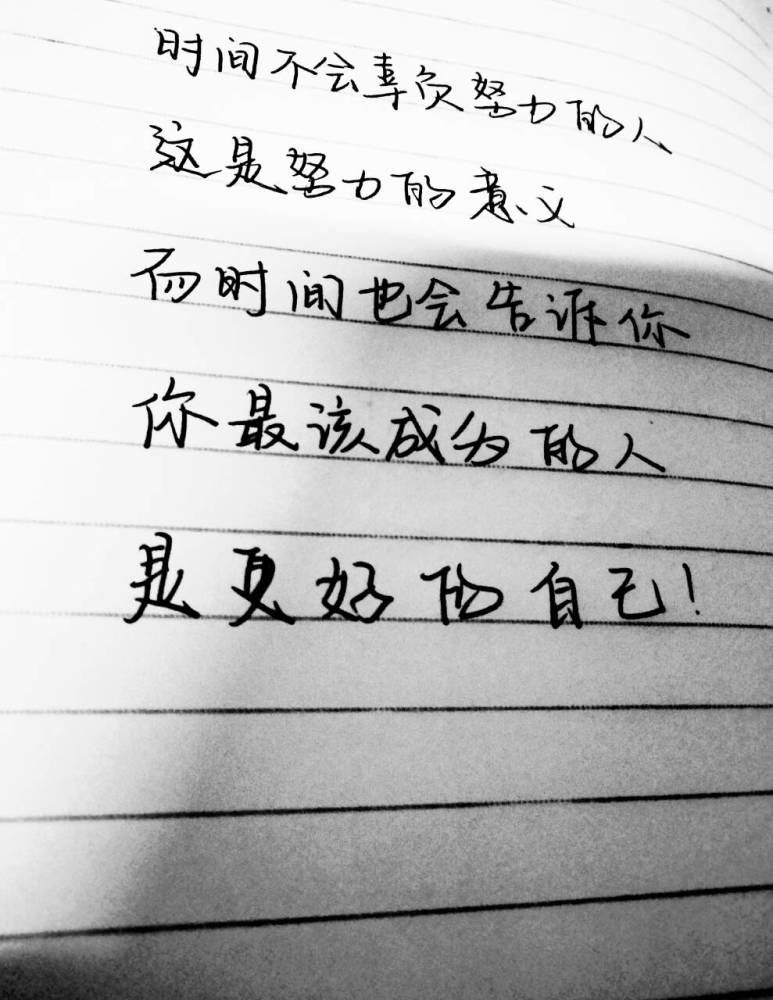 时间不会辜负努力的人
这是努力的意义
而时间也会告诉你
你最该成为的人
是更好的自己!